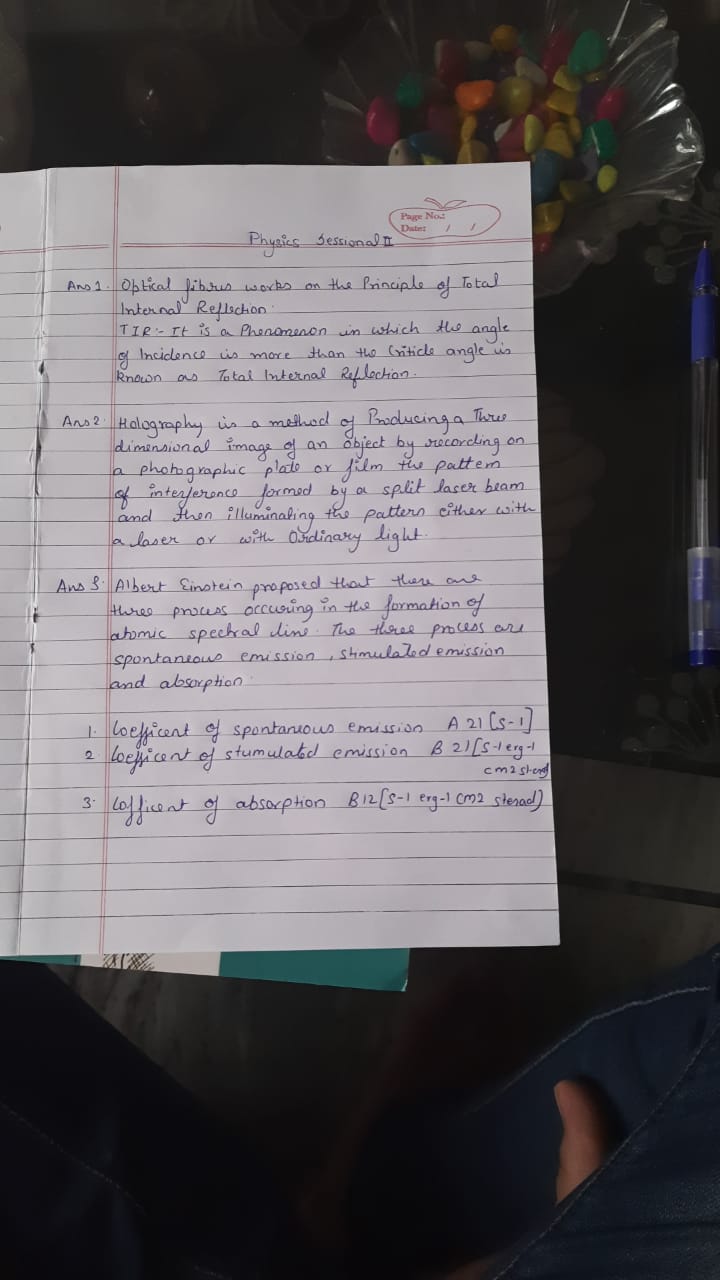 Page No.:
Date: / /
Physics Sessional II
Ans 1. Optical fibres works on the Principle of Total
Internal Reflection.
TIR:- It is a Phenomenon in which the angle
of Incidence is more than the Criticle angle is
known as Total Internal Reflection.
Ans 2. Holography is a method of Producing a Three
dimensional image of an object by recording on
a photographic plate or film the pattern
of interference formed by a split laser beam
and then illuminating the pattern either with
a laser or with Ordinary light.
Ans 3. Albert Einstein proposed that there are
three process occuring in the formation of
atomic spectral line. The three process are
spontaneous emission, stimulated emission
and absorption.
1. Coefficent of spontaneous emission A 21 [s-1]
2. Coefficent of stumulated emission B 21 [s-1 erg-1
cm2 sterad
3. Cofficent of absorption B12 [s-1 erg-1 cm2 sterad)